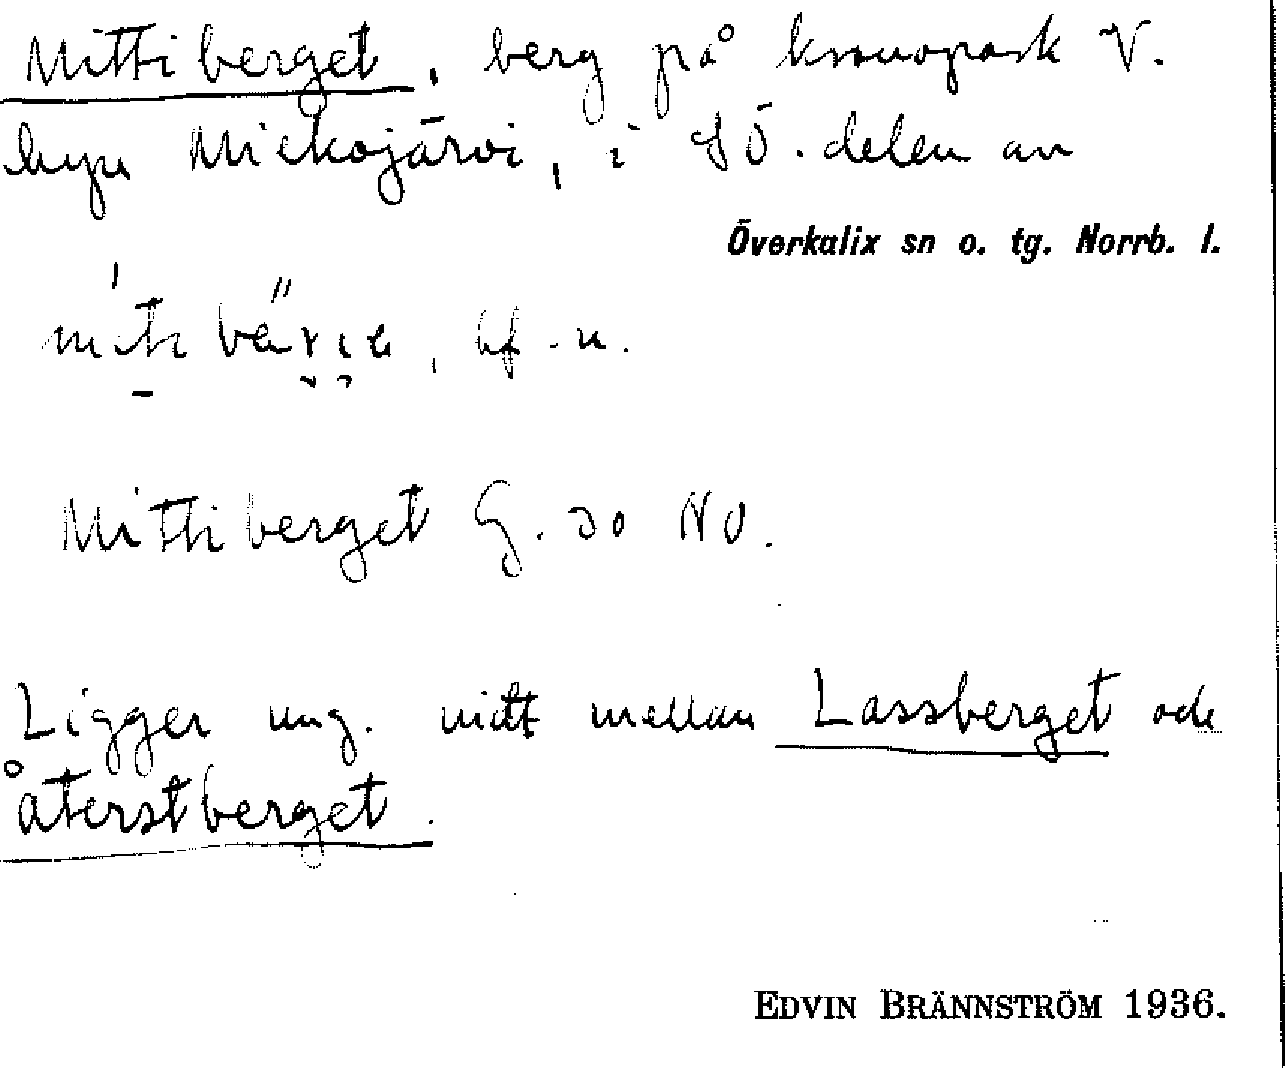 Mittiberget, berg på kronopark V.
byn Mickojärvi, i SÖ. delen av
Överkalix sn o. tg. Norrb. l.
Mittiberget G. 30 NO.
Ligger ung. midt mellan Lassberget och
Återstberget.
EDVIN BRÄNNSTRÖM 1936.